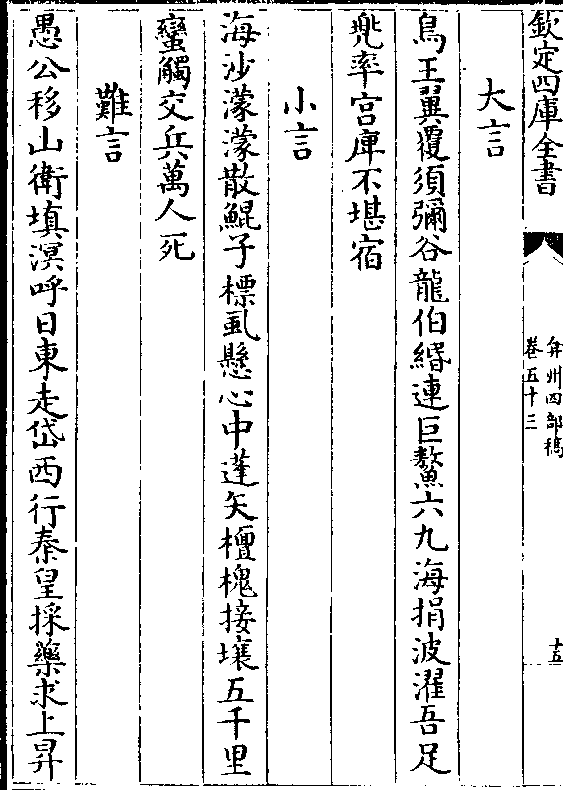 欽定四庫全書
弇州四部稿
卷五十三
十五
大言
鳥王翼覆須彌谷龍伯緡連巨鰲六九海捐波濯吾足
兠率宫庫不堪宿
小言
海沙濛濛散鯤子標虱懸心中蓬矢檀槐接壤五千里
蠻觸交兵萬人死
難言
愚公移山衛填溟呼日東走岱西行秦皇採藥求上昇